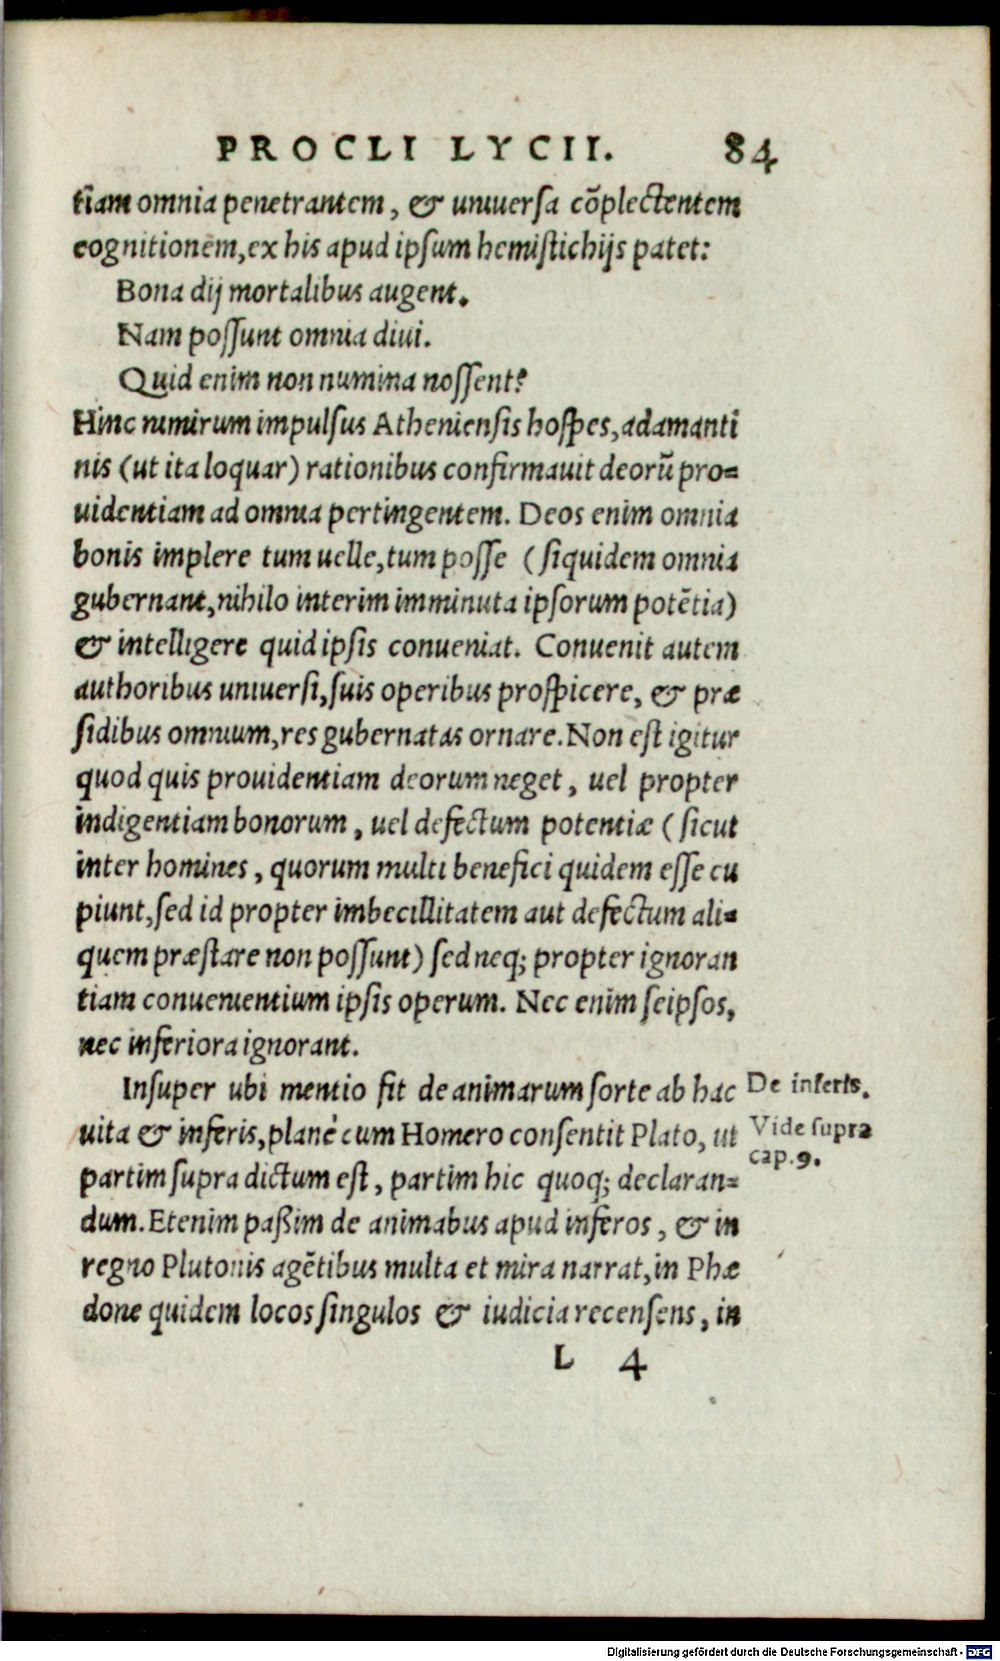 PROCLI LYCII. 84
tiam omnia penetrantem, & uniuersa cõplectentem
cognitionem, ex his apud ipsum hemistichijs patet:
Bona dij mortalibus augent.
Nam possunt omnia diui.
Quid enim non numina nossent?
Hinc nimirum impulsus Atheniensis hospes, adamanti
nis (ut ita loquar) rationibus confirmauit deorũ pro=
uidentiam ad omnia pertingentem. Deos enim omnia
bonis implere tum uelle, tum posse (siquidem omnia
gubernant, nihilo interim imminuta ipsorum potẽtia)
& intelligere quid ipsis conueniat. Conuenit autem
authoribus uniuersi, suis operibus prospicere, & præ
sidibus omnium, res gubernatas ornare. Non est igitur
quod quis prouidentiam deorum neget, uel propter
indigentiam bonorum, uel defectum potentiæ (sicut
inter homines, quorum multi benefici quidem esse cu
piunt, sed id propter imbecillitatem aut defectum ali=
quem præstare non possunt) sed neq; propter ignoran
tiam conuenientium ipsis operum. Nec enim seipsos,
nec inferiora ignorant.
Insuper ubi mentio fit de animarum sorte ab hac
De inferis.
uita & inferis, planè cum Homero consentit Plato, ut
Vide supra
cap.9.
partim supra dictum est, partim hic quoq; declaran=
dum. Etenim paßim de animabus apud inferos, & in
regno Plutonis agẽtibus multa et mira narrat, in Phæ
done quidem locos singulos & iudicia recensens, in
L 4
Digitalisierung gefördert durch die Deutsche Forschungsgemeinschaft - DFG